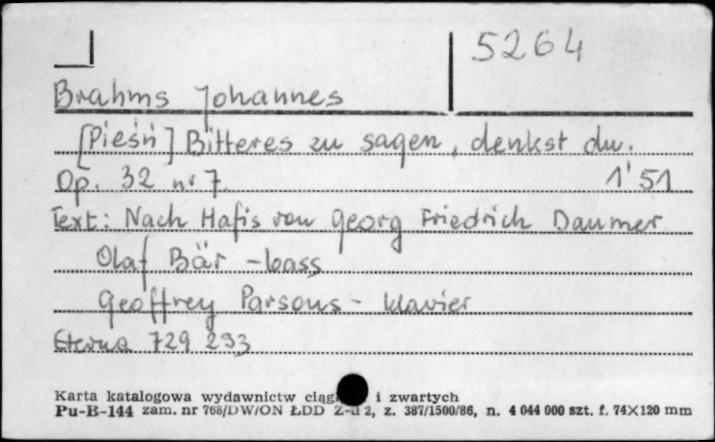 5264
Brahms Johannes
[Pieśń] Bitteres zu sagen, denkst du.
Op. 32 nr 7. 1'51
Text: Nach Hafis von Georg Friedrich Daumer
Olaf Bär - bass
Geoffrey Parsons - klavier
Eterna 729 293
Karta katalogowa wydawnictw i zwartych
Pu-B-144 zam. nr 768/DW/ON ŁDD 2, z. 387/1500/86, n. 4 044 000 szt. f. 74×120 mm